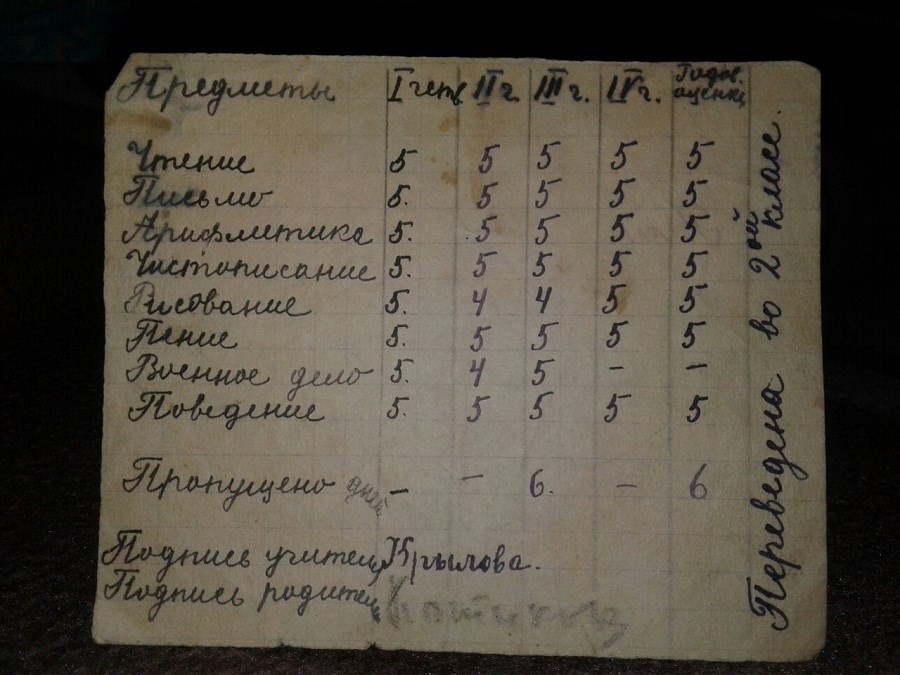 Предметы I четв II ч. III ч. IV ч. Годов. оценка
Чтение 5 5 5 5 5
Письмо 5. 5 5 5 5
Арифметика 5. 5 5 5 5
Чистописание 5. 5 5 5 5
Рисование 5. 4 4 5 5
Пение 5. 5 5 5 5
Военное дело 5. 4 5 - -
Поведение 5. 5 5 5 5
Пропущено дней - - 6. - 6
Подпись учител Крылова.
Подпись родител
Переведена во 2ой класс.